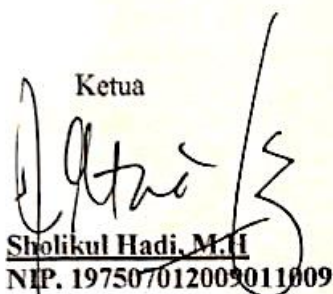 Ketua
Sholikul Hadi, M.H
NIP. 197507012009011009